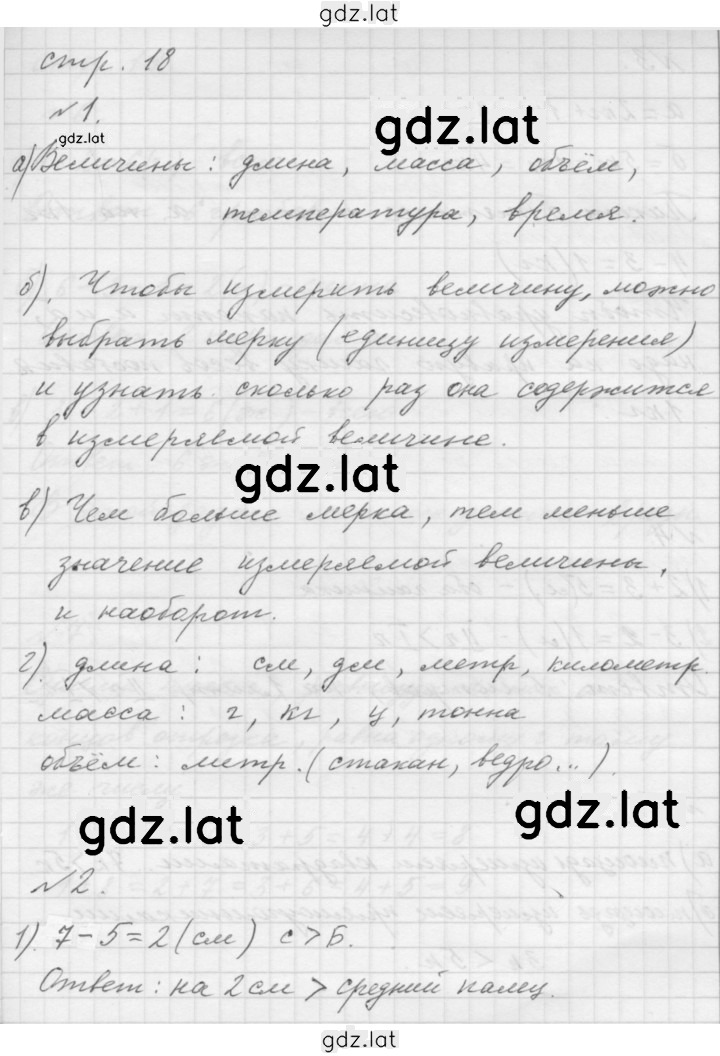 gdz.lat
стр. 18
№1.
gdz.lat
gdz.lat
а) Величины: длина, масса, объём,
температура, время.
б). Чтобы измерить величину, можно
выбрать мерку (единицу измерения)
и узнать сколько раз она содержится
в измеряемой величине.
gdz.lat
в) Чем больше мерка, тем меньше
значение измеряемой величины,
и наоборот.
г). длина: см, дм, метр, километр.
масса: г, кг, ц, тонна
объём: метр. (стакан, ведро...).
gdz.lat
gdz.lat
№2.
1). 7-5=2(см) с>Б.
Ответ: на 2см > средний палец.
gdz.lat